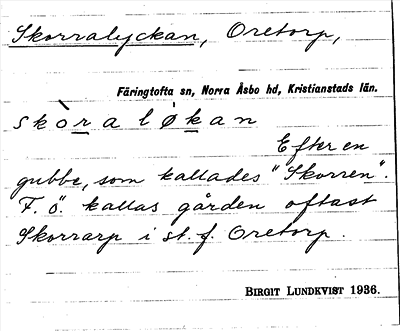 Skorralyckan, Oretorp,
Färingtofta sn, Norra Åsbo hd, Kristianstads län.
skòra løkan
Efter en
gubbe, som kallades "Skorren".
F. ö. kallas gården oftast
Skorrarp i st. f. Oretorp.
BIRGIT LUNDKVIST 1936.